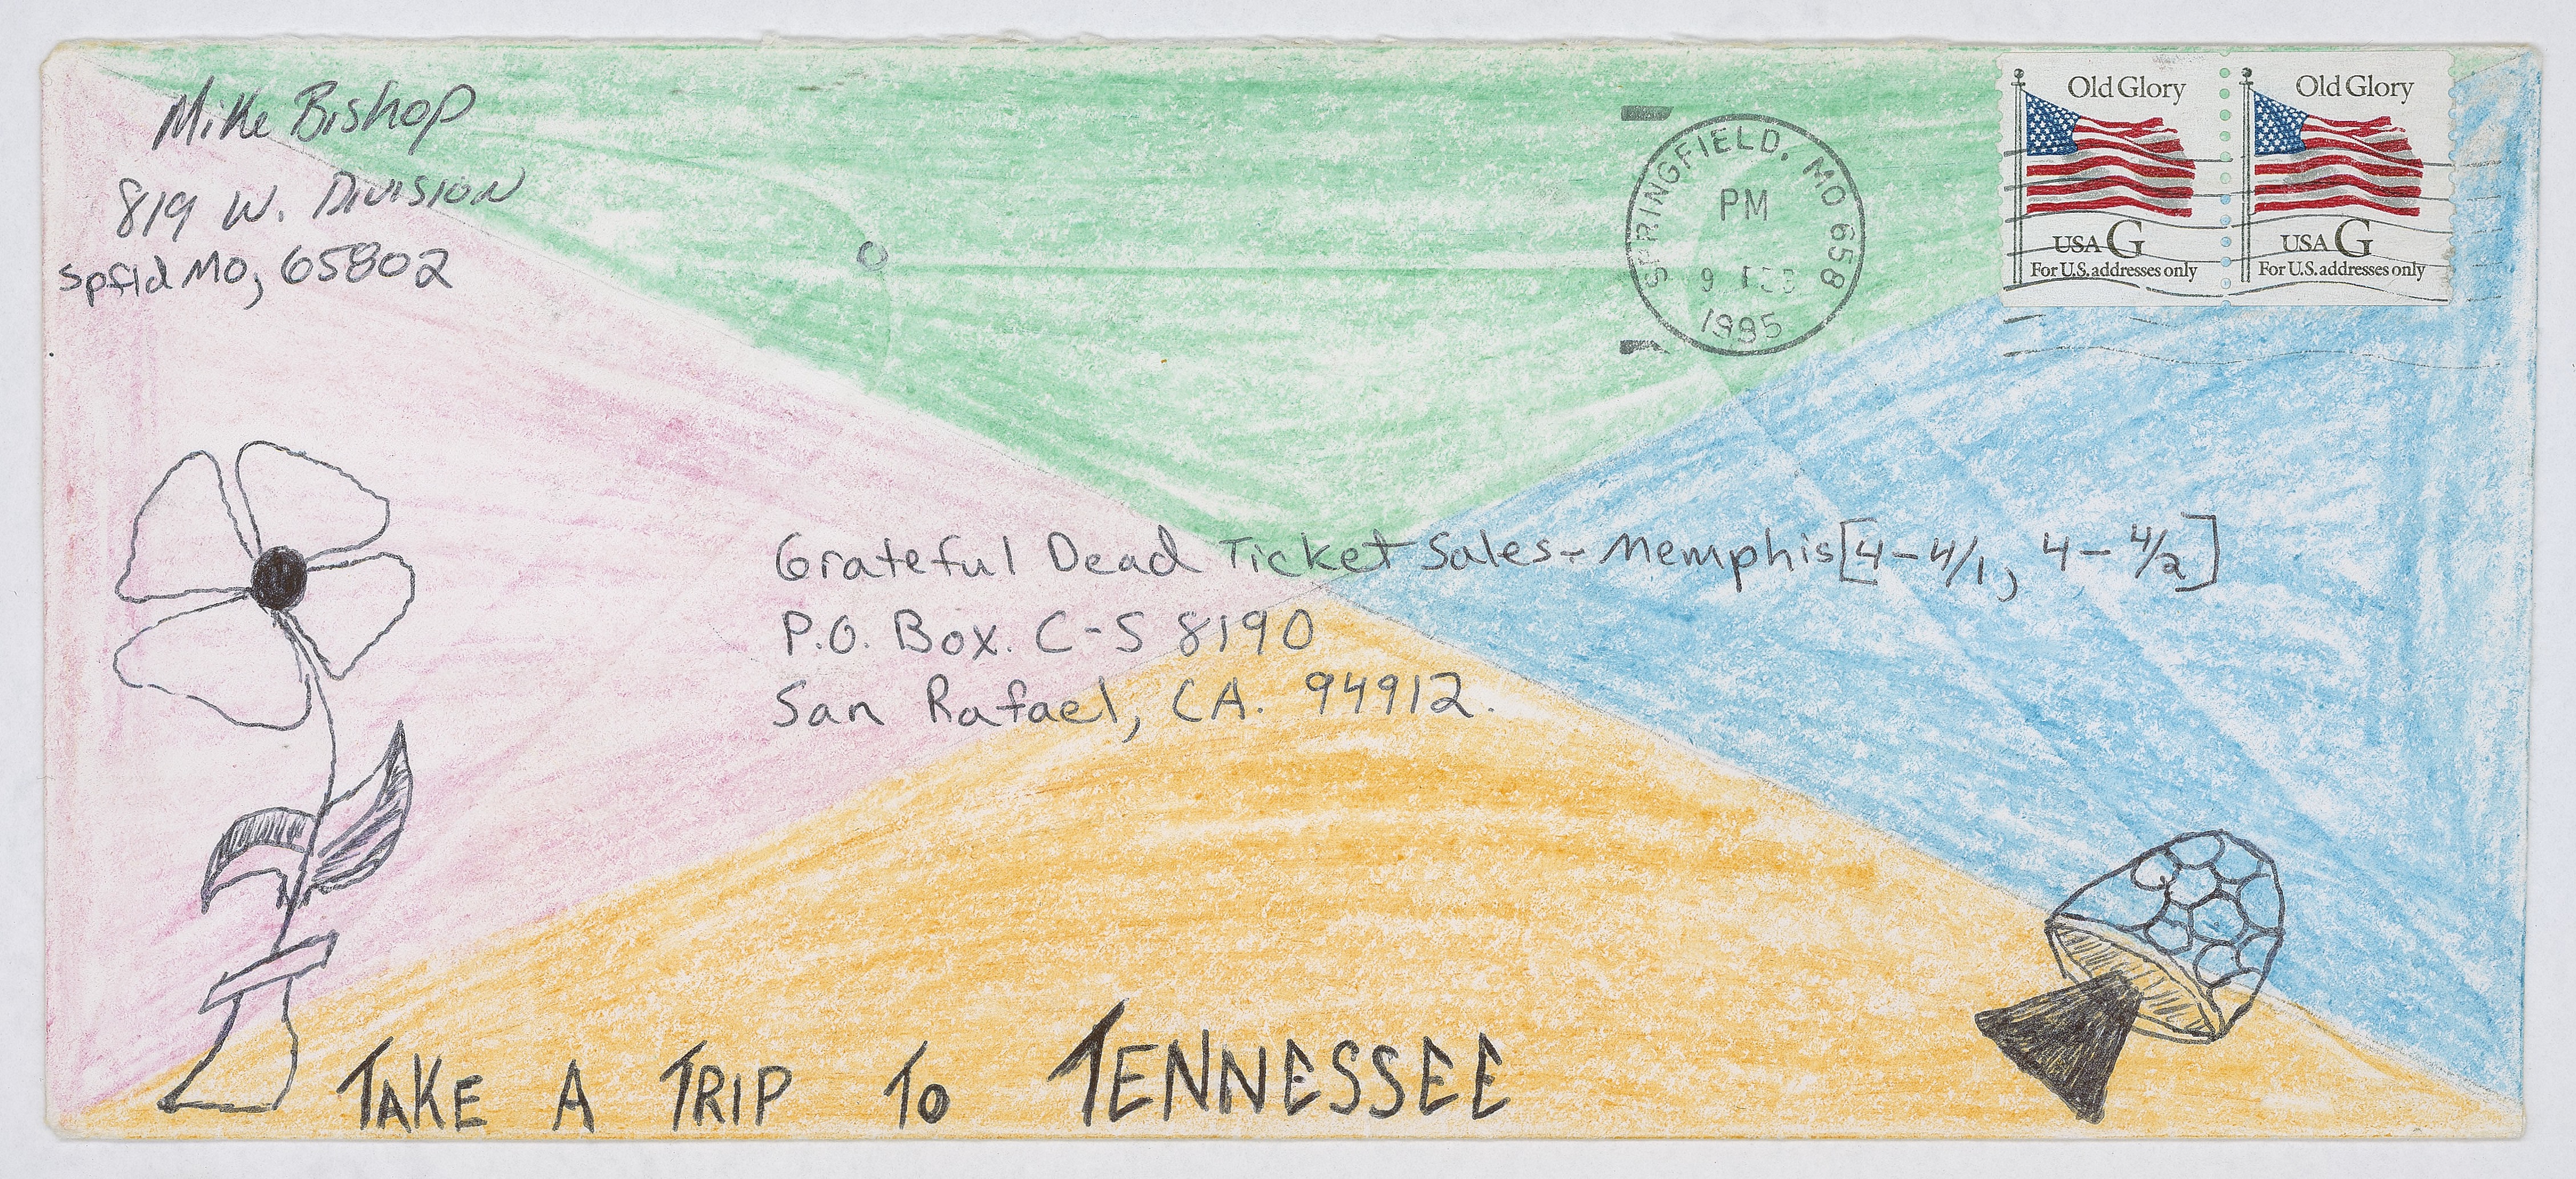 Mike Bishop
819 W. Division
Spfld MO, 65802
SPRINGFIELD, MO 658
PM
9 FEB
1995
Old Glory
USA G
For U.S. addresses only
Old Glory
USA G
For U.S. addresses only
Grateful Dead Ticket Sales - Memphis [4-4/1, 4-4/2]
P.O. Box. C-S 8190
San Rafael, CA. 94912.
TAKE A TRIP TO TENNESSEE